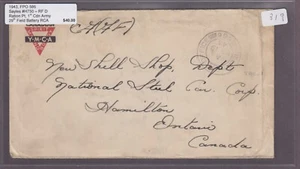 1943, FPO 686
Sayles #4730 – RF D
Reford Pt. 1st Cdn Army
29th Field Battery RCA $40.00
313
Y·M·C·A
New Shell Shop, Dept
National Steel Car. Corp
Hamilton
Ontario
Canada